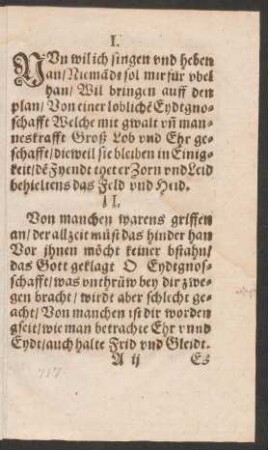 I.
NUn wil ich singen vnd heben
an/ Niemãdt sol mir für vbel
han/ Wil bringen auff den
plan/ Von einer loblichẽ Eydtgno-
schafft Welche mit gwalt vñ man-
neskrafft Groß Lob vnd Ehr ge-
schafft/ dieweil sie bleiben in Einig-
keit/ dẽ Fyendt theter Zorn vnd Leid
behieltens das Feld vnd Heid.
II.
Von manchen warens griffen
an/ der allzeit můst das hinder han
Vor jhnen möcht keiner bstahn/
das Gott geklagt O Eydtgnos-
schafft/ was vnthrüw bey dir zwe-
gen bracht/ wirdt aber schlecht ge-
acht/ Von manchen ist dir worden
gseit/ wie man betrachte Ehr vnnd
Eydt/ auch halte Frid vnd Gleidt.
A ij
Es